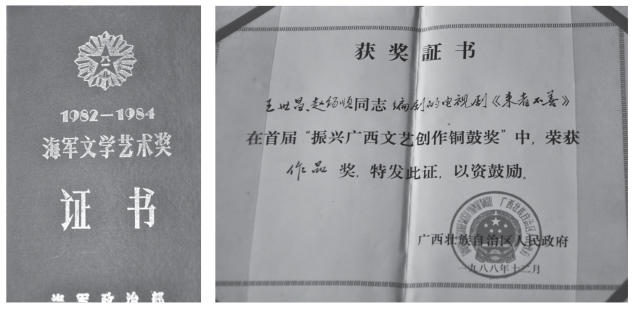 1982—1984
海军文学艺术奖
证书
海军政治部
获奖証书
王世昌 赵锡顺同志 编剧的电视剧《来者不善》
在首届“振兴广西文艺创作铜鼓奖”中,荣获
作品 奖,特发此证,以资鼓励。
广西壮族自治区人民政府
一九八八年十二月